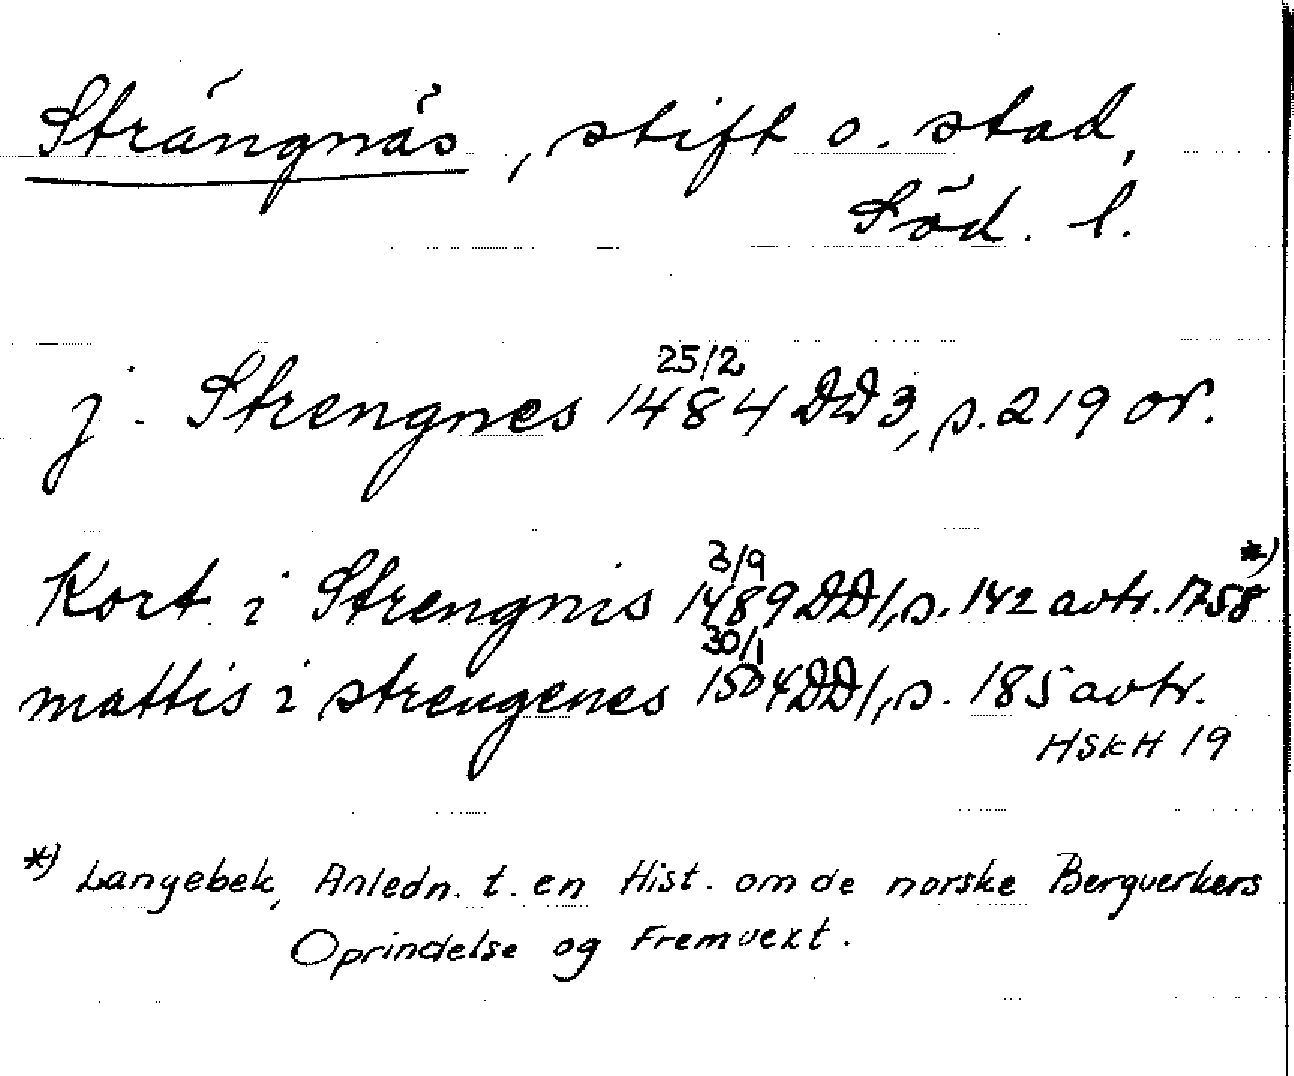 Strängnäs, stift o. stad,
Söd. l.
j. Strengnes 25/2 1484 DD3, s. 219 or.
Kort i Strengnis 3/9 1489 DD1, s. 142 avtr. 1758 *)
mattis i strengenes 30/1 1504 DD1, s. 185 avtr.
HSkH 19
*) Langebek, Anledn. t. en Hist. om de norske Bergverkers
Oprindelse og Fremvext.